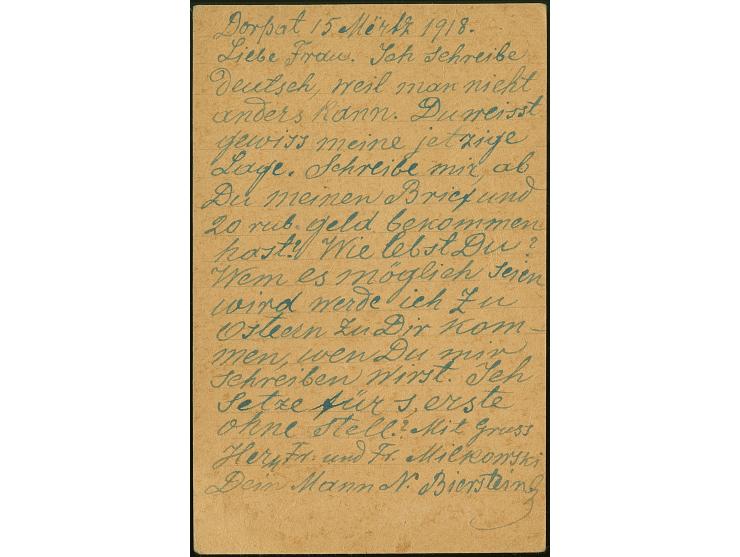 Dorpat 15. Mërtz 1918.
Liebe Frau. Ich schreibe
deutsch, weil man nicht
anders kann. Du weisst
gewiss meine jetzige
Lage. Schreibe mir, ab
Du meinen Brief und
20 rub. geld bekommen
hast? Wie lebst Du?
Wem es möglich seien
wird werde ich zu
Ostern zu Dir kom-
men, wen Du mir
schreiben wirst. Ich
setze für s, erste
ohne stell? Mit Gruss
Fr. und Fr. Milkowski
Dein Mann N. Bierstein